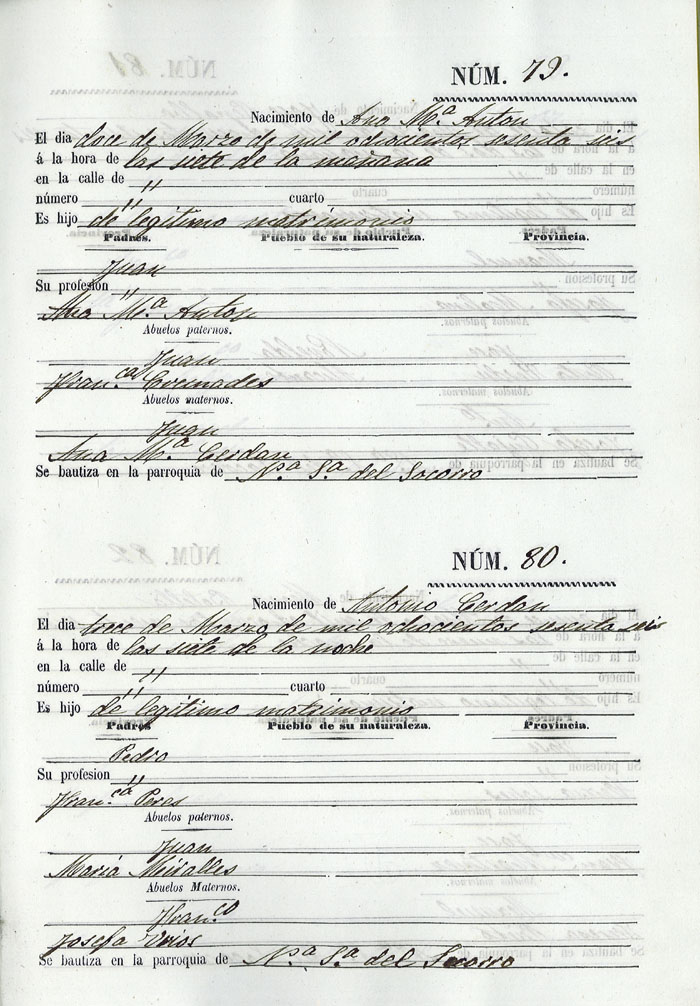 NÚM. 79.
Nacimiento de Ana M.ª Anton
El dia doce de Marzo de mil ochocientos sesenta seis
á la hora de las siete de la mañana
en la calle de "
número " cuarto
Es hijo de legitimo matrimonio
Padres. Pueblo de su naturaleza. Provincia.
Juan
Su profesion "
Ana M.ª Anton
Abuelos paternos.
Juan
Fran.ca
Abuelos maternos.
Juan
Ana M.ª Cerdan
Se bautiza en la parroquia de N.ª S.ª del Socorro
NÚM. 80.
Nacimiento de Antonio Cerdan
El dia trece de Marzo de mil ochocientos sesenta seis
á la hora de las siete de la noche
en la calle de "
número " cuarto
Es hijo de legitimo matrimonio
Padres Pueblo de su naturaleza. Provincia.
Pedro
Su profesion "
Fran.ca Peres
Abuelos paternos.
Juan
Maria Miralles
Abuelos Maternos.
Fran.co
Josefa
Se bautiza en la parroquia de N.ª S.ª del Socorro